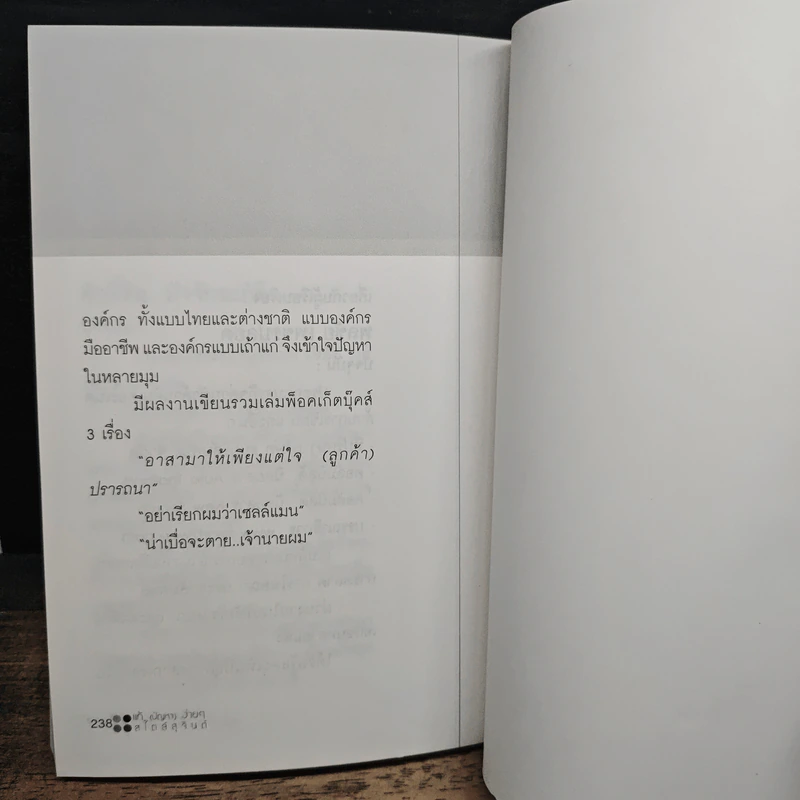 องค์กร ทั้งแบบไทยและต่างชาติ แบบองค์กร
มืออาชีพ และองค์กรแบบเถ้าแก่ จึงเข้าใจปัญหา
ในหลายมุม
มีผลงานเขียนรวมเล่มพ็อคเก็ตบุ๊คส์
3 เรื่อง
"อาสามาให้เพียงแต่ใจ (ลูกค้า)
ปรารถนา"
"อย่าเรียกผมว่าเซลล์แมน"
"น่าเบื่อจะตาย..เจ้านายผม"
238 แก้ ปัญหา ง่ายๆ
สไตล์สุจินต์